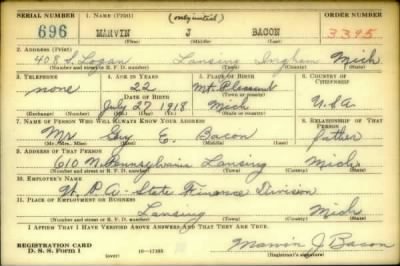 SERIAL NUMBER 1. NAME (Print) (only initial) ORDER NUMBER
696 MARVIN J BACON 3395
(First) (Middle) (Last)
2. ADDRESS (Print)
408 S. Logan Lansing Ingham Mich
(Number and street or R. F. D. number) (Town) (County) (State)
3. TELEPHONE 4. AGE IN YEARS 5. PLACE OF BIRTH 6. COUNTRY OF CITIZENSHIP
none 22 Mt. Pleasant
DATE OF BIRTH (Town or county)
July 27 1918 Mich U.S.A
(Exchange) (Number) (Mo.) (Day) (Yr.) (State or country)
7. NAME OF PERSON WHO WILL ALWAYS KNOW YOUR ADDRESS 8. RELATIONSHIP OF THAT PERSON
Mr Guy E. Bacon father
(Mr., Mrs., Miss) (First) (Middle) (Last)
9. ADDRESS OF THAT PERSON
610 N. Pennsylvania Lansing Mich
(Number and street or R. F. D. number) (Town) (County) (State)
10. EMPLOYER'S NAME
W. P. A - State Finance Division
11. PLACE OF EMPLOYMENT OR BUSINESS
Lansing Mich
(Number and street or R. F. D. number) (Town) (County) (State)
I AFFIRM THAT I HAVE VERIFIED ABOVE ANSWERS AND THAT THEY ARE TRUE.
REGISTRATION CARD
D. S. S. Form 1 (over) 16-17105 Marvin J. Bacon
(Registrant's signature)